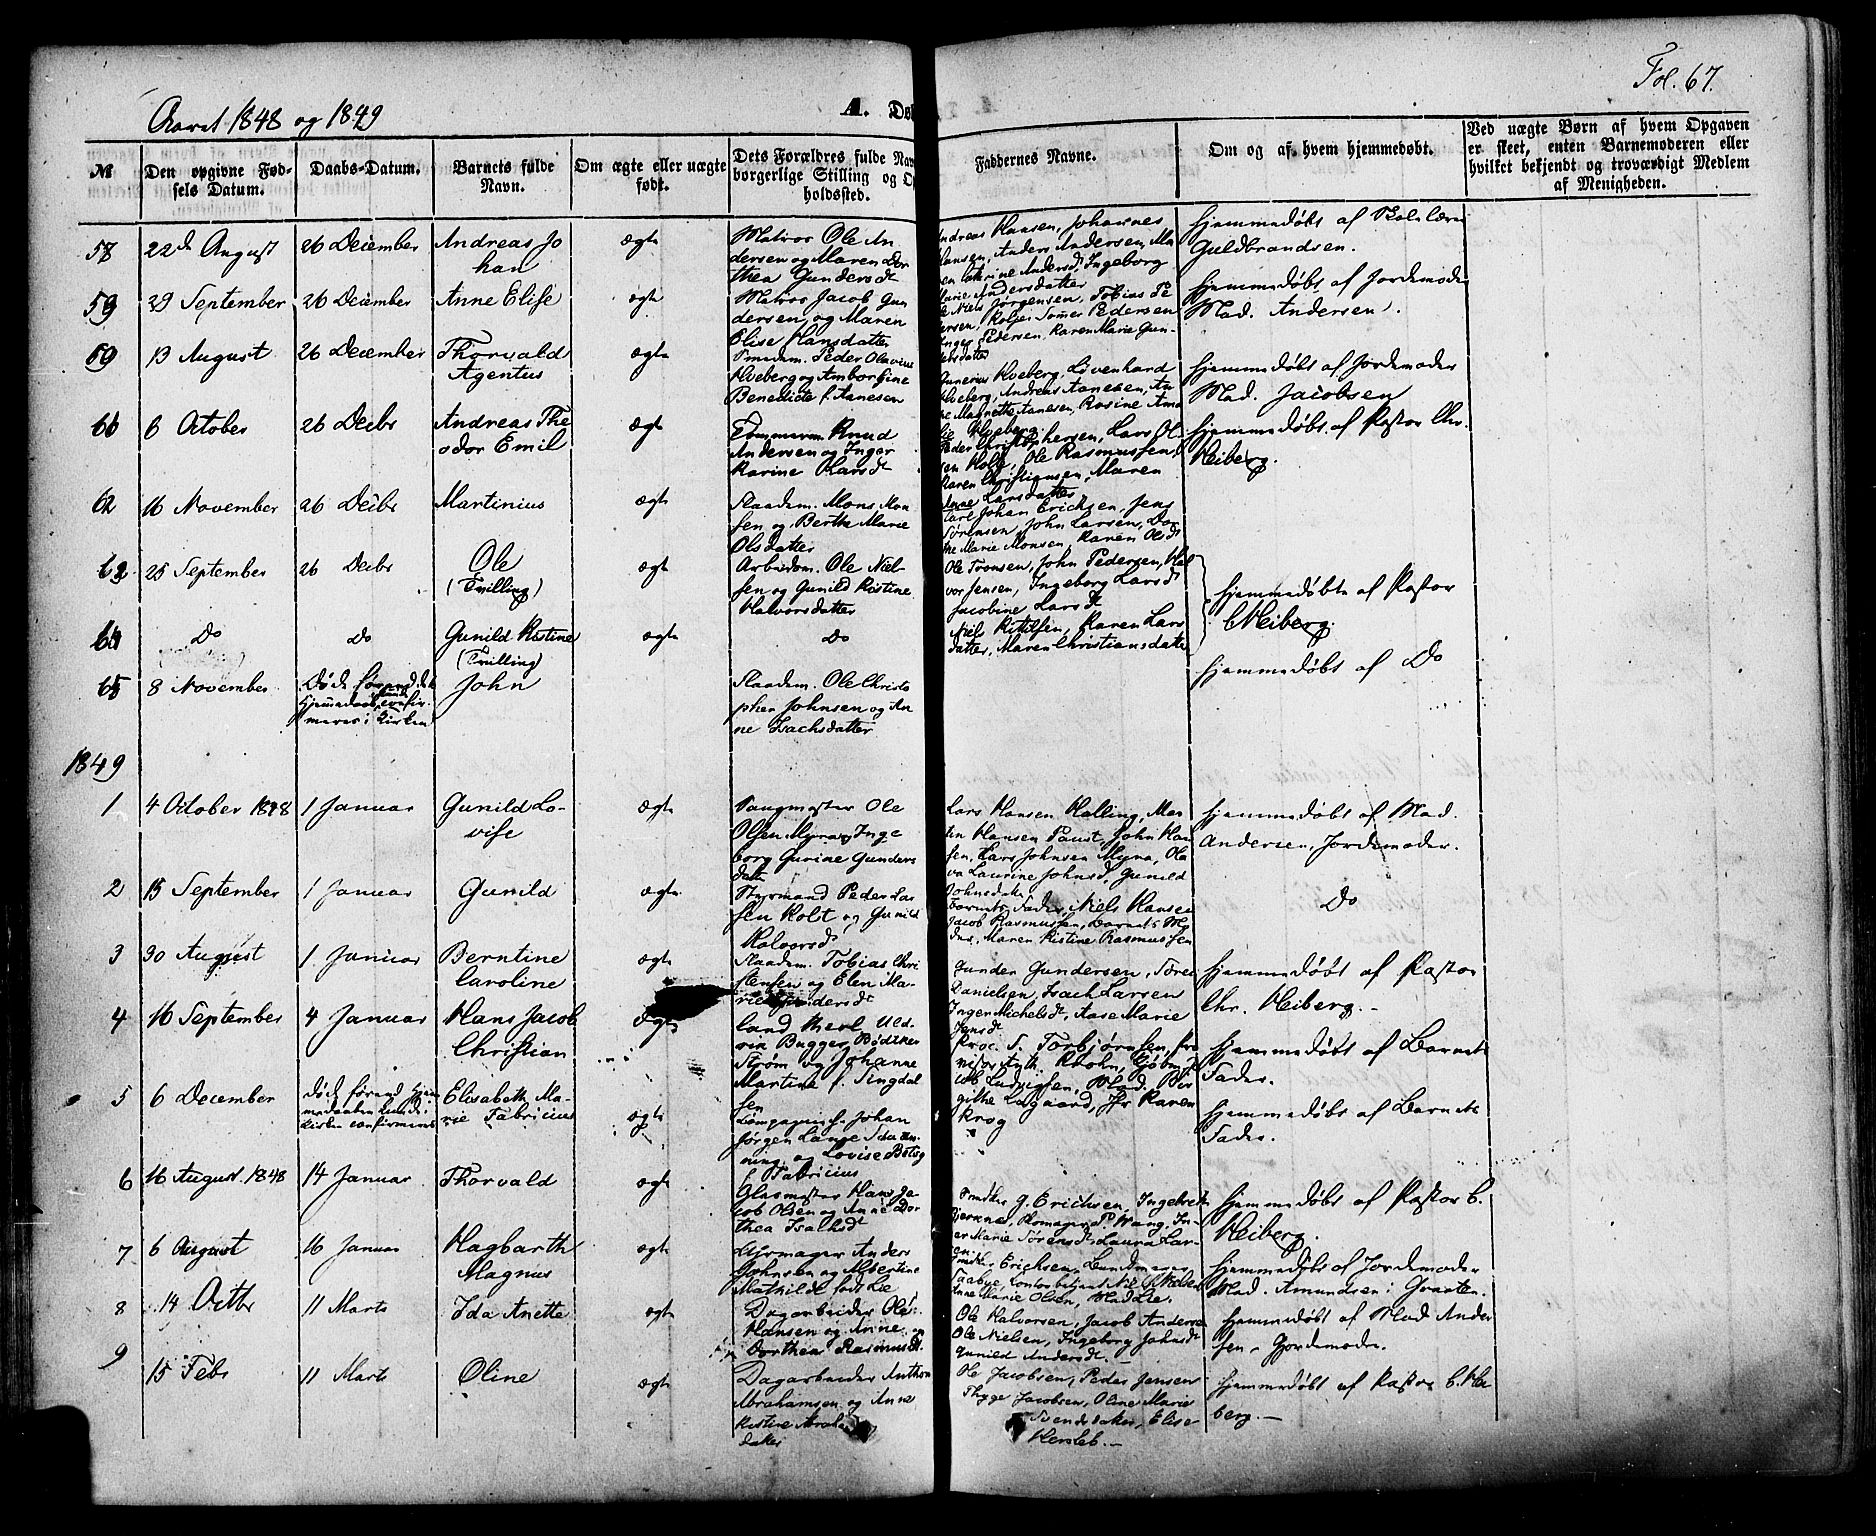 Fol. 67.
Aaret 1848 og 1849
A. Døb
No
Den opgivne Fød-
sels Datum.
Daabs-Datum.
Barnets fulde
Navn.
Om ægte eller uægte
født.
Dets Forældres fulde Nav
borgerlige Stilling og Op
holdssted.
Faddernes Navne.
Om og af hvem hjemmedøbt.
Ved uægte Børn af hvem Opgaven
er skeet, enten Barnemoderen eller
hvilket bekjendt og troværdigt Medlem
af Menigheden.
22de August
26 December
Andreas Jo
han
ægte
Matros Ole An
dersen og Maren Dor
thea Gundersdt
Andreas Hansen, Johannes
Hansen, Anders Andersen, Ma
Cathrine Andersdt Ingeborg
Marie Andersdatter
hjemmedøbt af
Guldbrandsen.
29 September
26 December
Anne Elise
ægte
Matros Jacob Gun
dersen og Maren
Elise Hansdatter
Niels Jørgensen, Tobias Pe
dersen, Pedersen
Inger Pedersen, Karen Marie Gun-
dersdatter
hjemmedøbt af Jordemoder
Mad. Andersen.
59
13 August
26 December
Thorvald
Agentus
ægte
Smedem. Peder Olavius
Hoeberg og Ambor Gine
Benedicte f. Aanesen
Gunerius Hoeberg, Løvenhard
Hoeberg, Andreas Aanesen, An
ne Magnette Aanesen, Rosine Ama
lie Hoeberg.
hjemmedøbt af Jordemoder
Mad. Jacobsen
6 October
26 Decbr
Andreas The
odor Emil
ægte
Tømmerm. Knud
Andersen og Inger
Karine Olarsdt
Peder Christophersen, Lars Ol-
sen Holt, Ole Rasmussen,
Karen Christiansen, Maren
Anne Larsdatter
hjemmedøbt af Pastor Chr.
Heiberg.
62
16 November
26 Decbr
Martinius
ægte
Flaadem. Mons Mon
sen og Berthe Marie
Olsdatter
Carl Johan Ericksen, Jens
Sørensen, John Larsen, Do
the Marie Monsen, Karen Olsdt
25 September
26 Decbr
Ole
(Tvilling)
ægte
Arbeidsm. Ole Niel-
sen og Gunild Kistine
Halvorsdatter
Ole Tronsen, John Pedersen, Hal
vor Jensen, Ingeborg Larsdt
Jacobine Larsdt
hjemmedøbte af Pastor
C Heiberg.
Do
Do
Gunild Kistine
(Tvilling)
ægte
Do
Niels Kittelsen, Karen Lars
datter, Maren Christiansdatter
65
8 November
Døde førend dets
Hjemmedaab kunde confir-
meres i Kirken
John
Flaadem. Ole Christo
pher Johnsen og An
ne Isachsdatter
hjemmedøbt af Do
1849
1
4 October 1848
1 Januar
Gunild Lo-
vise
ægte
Sangmester Ole
Olsen Myra og Inge
borg Gurine Gunders
datter
Lars Hansen Halling, Mar
tin Hansen Faust, John Han
sen, Lars Johnsen Myra, Ola
va Laurine Johnsdt, Gunild
Johnsdatter
hjemmedøbt af Mad.
Andersen, Jordemoder.
2
15 September
1 Januar
Gunild
ægte
Styrmand Peder Las
sen Holt og Gunild
Halvorsdt
Barnets Fader, Niels Hansen
Jacob Rasmussen, Barnets Mo
der, Maren Kistine Rasmussen
Do
3
30 August
1 Januar
Berntine
Caroline
ægte
Flaadem. Tobias Chri
stensen og Elen Ma-
rie Gundersdt
Gunder Gundersen, Søren
Danielsen, Isach Larsen
Inger Michelsdt, Aase Marie
Jensdt
hjemmedøbt af Pastor
Chr. Heiberg.-
4
16 September
4 Januar
Hans Jacob
Christian
ægte
Cand theol Uld-
rik Bugger Bødtker
Strøm og Johanne
Martine f. Tingdal
sen
Proc. S. Torbjørnsen, Pro
visor Anth. Krohn, Kjøbm J
cob Ludvigsen, Mad. Bir
githe Lagaard, Jfr Karen
Krog
hjemmedøbt af Barnets
Fader.
5
6 December
Døde førend Hjem
medaaben kunde i
Kirken confirmeres
Elisabeth Ma-
rie Fabricius
ægte
Compagnief. Johan
Jørgen Lange
og Lovise Betsy
f. Fabricius
hjemmedøbt af Barnets
Fader.
6
16 August. 1848
14 Januar
Thorvald
ægte
Glasmester Hans Ja-
cob Olsen og Anne Dor
thea Isachsdt
Snedker G. Erichsen, Ingebret
Bjernæs, Skomager P Wang, In-
er Marie Sørensdt Laura Lar-
sen.
hjemmedøbt af Pastor C.
Heiberg.
7
6 August
16 Januar
Hagbarth
Magnus
ægte
Uhrmager Anders
Johnsen og Albertine
Mathilde født Lie
Snedker Erichsen, Bundtmager
Taabye, Contorbetjent Niels Nielsen
Anne Marie Olsen, Mad Lie.
hjemmedøbt af Jordemoder
Mad. Amundsen i Graaten.
8
14 Octbr
11 Marts
Ida Anette
ægte
Dagarbeider Ole
Hansen og Anne
Dorthea Rasmusdt.
Ole Halvorsen, Jacob Anderse
Ole Nielsen, Ingeborg Johnsdt
Gunild Andersdt.-
hjemmedøbt af Mad Ander
sen, Jordemoder.
9
15 Febr
11 Marts
Oline
ægte
Dagarbeider Anthon
Abrahamsen og Anne
Kistine Abraha
datter
Ole Jacobsen, Peder Jensen
Thyge Jacobsen, Oline Marie
Svendsdatter, Elise
Hersleb.-
hjemmedøbt af Pastor C. Hei
berg.-